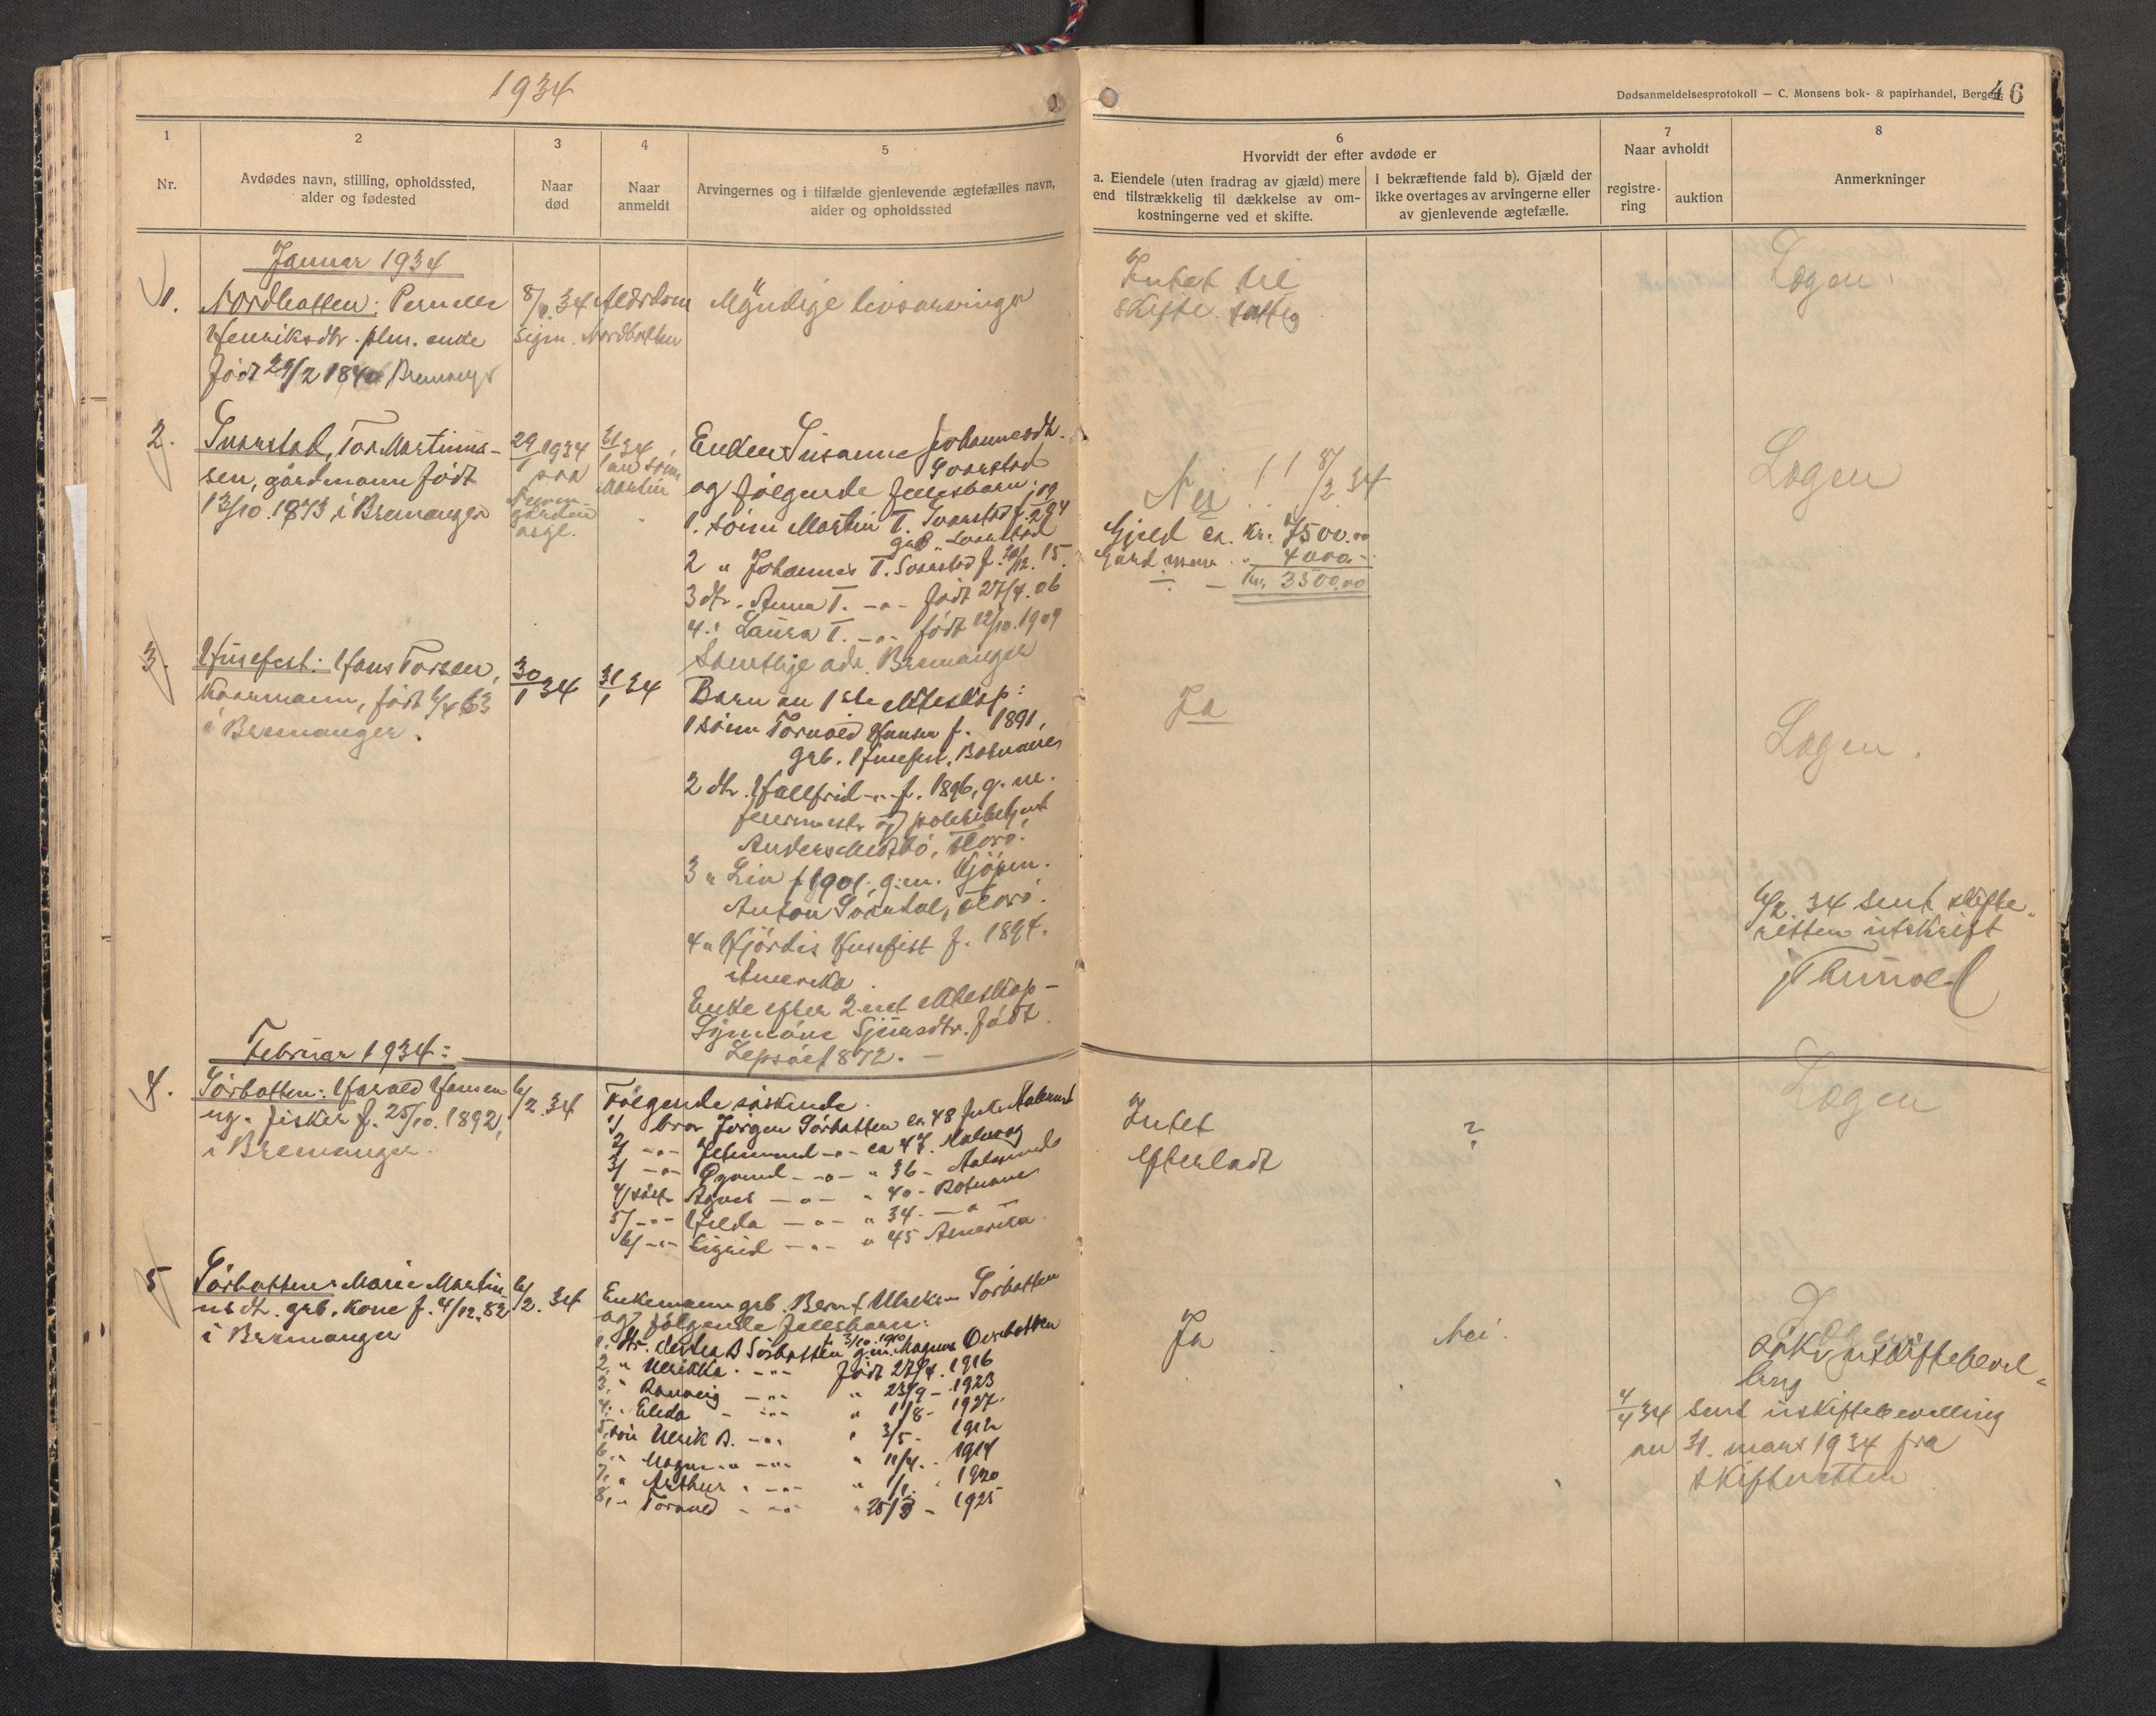 1934
Dødsanmeldelsesprotokoll — C. Monsens bok- & papirhandel, Bergen.
46
1
2
3
4
5
6
7
8
Nr.
Avdødes navn, stilling, opholdssted,
alder og fødested
Naar
død
Naar
anmeldt
Arvingernes og i tilfælde gjenlevende ægtefælles navn,
alder og opholdssted
Hvorvidt der efter avdøde er
a. Eiendele (uten fradrag av gjæld) mere
end tilstrækkelig til dækkelse av om-
kostningerne ved et skifte.
I bekræftende fald b). Gjæld der
ikke overtages av arvingerne eller
av gjenlevende ægtefælle.
Naar avholdt
registre-
ring
auktion
Anmerkninger
Januar 1934
1. Nordbotten: Pernelle
Henriksdtr. enke
født 29/2 1840 Bremanger
8/1.34 Alderdom
sign. Nordbotten
Myndige livsarvinger
Intet til
skifte. fattig
Logen
2. Svarstad, Tor Martinus-
sen, gårdmann født
13/10.1873 i Bremanger
29/1 1934
31/1 34
av sønn
Martin
Enken Susanne Johannesdtr.
Svarstad
og følgende fellesbarn:
1. sønn Martin T. Svarstad
2 " Johannes T. Svarstad f. 15.
3 dtr. Anna T. -"- født 27/4.06
4. " Laura T. -"- født 12/10.1909
Samtlige adr. Bremanger
Nei !! 8/2 34
Gjeld ca. kr. 7500.00
Gård 4000.-
Kr. 3500.00
Logen
3. Husefest: Hans Torsen,
Kaarmann, født 6/4 63
i Bremanger.
30/1 34
31/1 34
Barn av 1ste ekteskap:
1 sønn Torvald Hansen f. 1891,
grb. Husefest, Botnane
2 dtr. Hallfrid -"- f. 1896, g.m.
og politibetjent
Anders Florø.
3 " Liv f 1901, g.m. Kjøpm.
Anton Florø.
4 " Hjørdis Husefest f. 1894.
Amerika.
Enke efter 2net ekteskap -
Sjursdtr. født
1872. -
Ja
Logen.
6/2. 34 sent skifte-
retten utskrift
Februar 1934:
4. Sørbotten: Harald Hansen
ug. fisker f. 25/10.1892,
i Bremanger.
6/2.34
Følgende søskende:
1/ bror Jørgen Sørbotten ca 48
2/ -"- -"- ca 47.
3/ -"- Øyvind -"- " 36 -
4/ søst. Agnes -"- " 40 - Botnane
5/ -"- Hilda -"- " 34. -"-
6/ -"- Sigrid -"- " 45 Amerika.
Intet
efterladt
?
Logen
5 Sørbotten: Marie Martin
usdtr. grb. kone f. 4/12.82
i Bremanger
6/2.34
Enkemann grb. Bernt Ulriksen Sørbotten
og følgende fellesbarn:
1. dtr. B Sørbotten f. 3/10.1910 g.m. Magnus Oversbotten
2. " Ulrikka -"- født 27/4. 1916
3. " Ranveig -"- " 23/9 - 1923
4. " Elida -"- " 1/8 - 1927.
5. søn Ulrik B. -"- " 3/5 - 1912
6. " Magnus -"- " 11/4. 1914
7. " Arthur -"- " 1/1. 1920
8. " Torvald -"- " 25/3 - 1925
Ja
Nei.
4/4 34 sent uskiftebevilling
av 31. mars 1934 fra
skifteretten